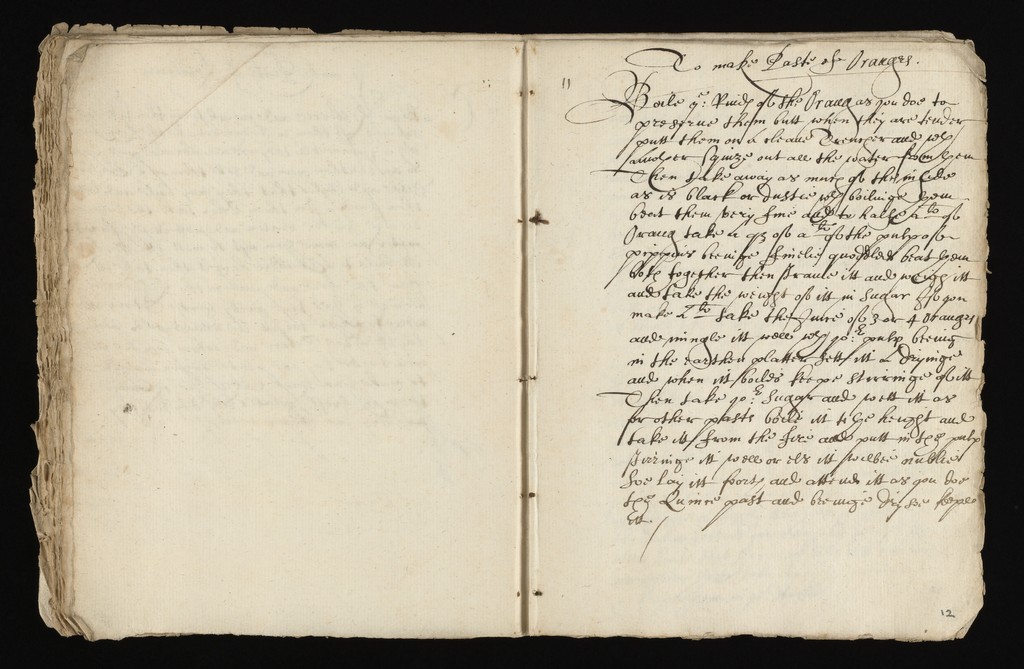 To make Paste of Oranges.
11
Boile yr: Rindes of the Orang as you doe to
preserve them butt when they are tender
putt them on a cleane Trencher and with
another squize out all the water from them
Then take away as much of the inside
as is black or dustie with boilinge them
beat them very fine and to halfe a li of
Orang take a q3 of a li of the pulp of
pippins beeinge finelie quodled beat them
both together then straine itt and weigh itt
and take the weight of itt in sugar if you
make li take the Juice of 3 or 4 Oranges
and mingle itt well with yor: pulp beeing
in the earthen platter sett itt a dryinge
and when itt boiles keepe stirringe of itt
Then take yor: sugar and wett itt as
for other paste boile itt to the height and
take itt from the fire and putt in the pulp
stirringe itt well or els itt wilbee
soe lay itt forth and attend itt as you doe
the Quince past and beeinge dry soe keepe
itt
12